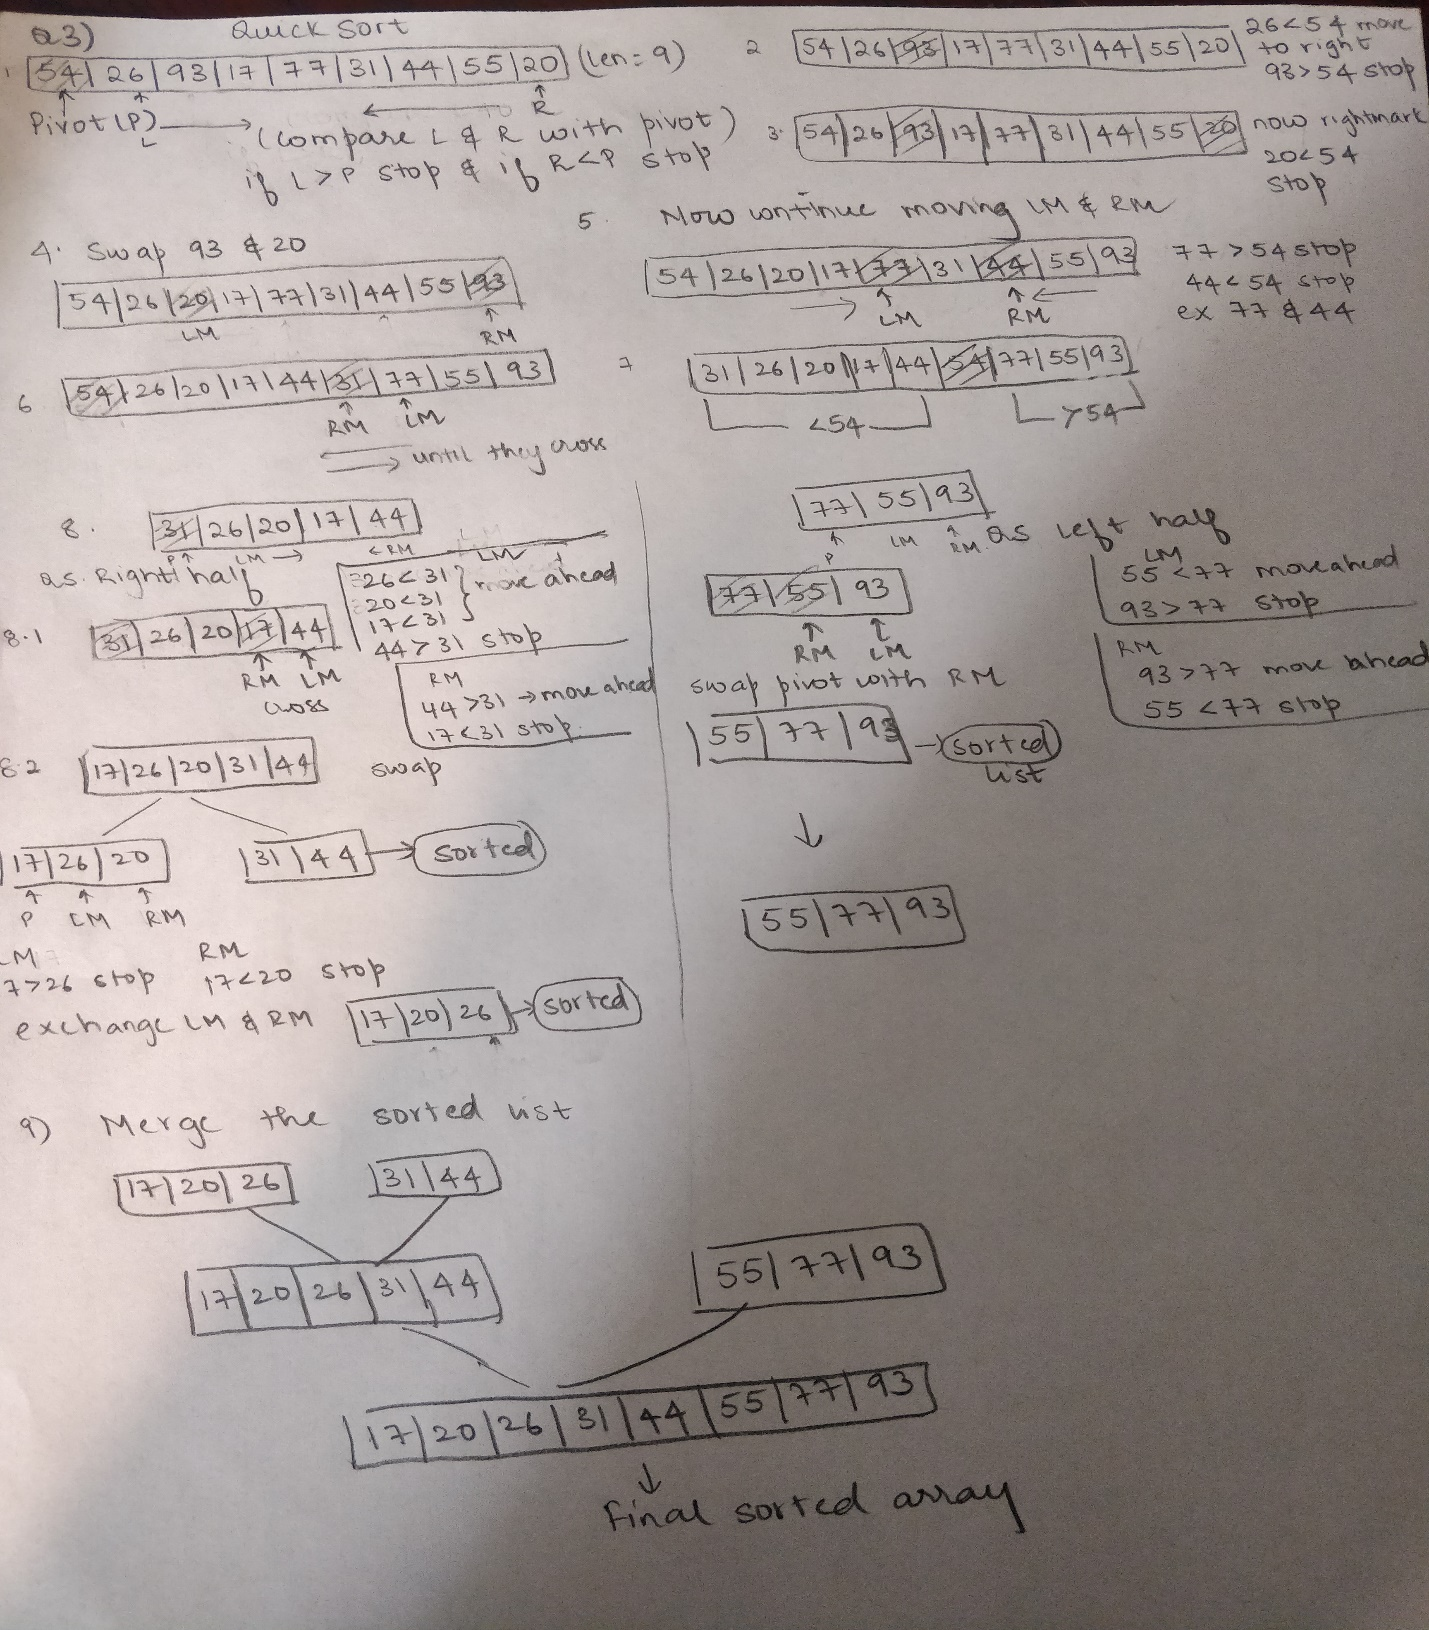 Q3) Quick Sort
1 54 | 26 | 93 | 17 | 77 | 31 | 44 | 55 | 20 (len = 9)
Pivot (P) L R
(compare L & R with pivot)
if L > P stop & if R < P stop
2 54 | 26 | 93 | 17 | 77 | 31 | 44 | 55 | 20
26 < 54 move
to right
93 > 54 stop
3. 54 | 26 | 93 | 17 | 77 | 31 | 44 | 55 | 20
now rightmark
20 < 54
stop
4. Swap 93 & 20
54 | 26 | 20 | 17 | 77 | 31 | 44 | 55 | 93
LM RM
5. Now continue moving LM & RM
54 | 26 | 20 | 17 | 77 | 31 | 44 | 55 | 93
LM RM
77 > 54 stop
44 < 54 stop
ex 77 & 44
6 54 | 26 | 20 | 17 | 44 | 31 | 77 | 55 | 93
RM LM
until they cross
7 31 | 26 | 20 | 17 | 44 | 54 | 77 | 55 | 93
< 54 > 54
8. 31 | 26 | 20 | 17 | 44
P LM → ← RM
as Right half
LM
26 < 31
20 < 31
17 < 31
move ahead
44 > 31 stop
8.1 31 | 26 | 20 | 17 | 44
RM LM
cross
RM
44 > 31 → move ahead
17 < 31 stop.
8.2 17 | 26 | 20 | 31 | 44 swap
17 | 26 | 20 31 | 44 → sorted
P LM RM
LM RM
7 > 26 stop 17 < 20 stop
exchange LM & RM 17 | 20 | 26 → sorted
77 | 55 | 93
P LM RM
as left half
LM
55 < 77 move ahead
93 > 77 stop
77 | 55 | 93
RM LM
RM
93 > 77 move ahead
55 < 77 stop
swap pivot with RM
55 | 77 | 93 → sorted
list
55 | 77 | 93
9) Merge the sorted list
17 | 20 | 26 31 | 44
17 | 20 | 26 | 31 | 44 55 | 77 | 93
17 | 20 | 26 | 31 | 44 | 55 | 77 | 93
Final sorted array